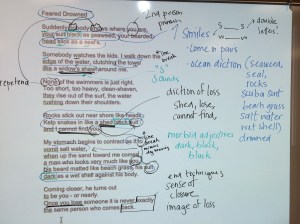 Feared Drowned
Suddenly nobody knows where you are,
your suit black as seaweed, your bearded
head slick as a seal's.
Somebody watches the kids. I walk down the
edge of the water, clutching the towel
like a widow's shawl around me.
None of the swimmers is just right.
Too short, too heavy, clean-shaven,
they rise out of the surf, the water
rushing down their shoulders.
Rocks stick out near shore like heads.
Kelp snakes in like a shed black suit
and I cannot find you.
My stomach begins to contract as if to
vomit salt water,
when up the sand toward me comes
a man who looks very much like you,
his beard matted like beach grass, his suit
dark as a wet shell against his body.
Coming closer, he turns out
to be you - or nearly.
Once you lose someone it is never exactly
the same person who comes back.
2nd person pronoun
line break
"s" sounds
repeten
diction of loss
shed, lose,
cannot find,
line break
morbid adjectives
dark, black,
black
end techniques
sense of
closure
image of loss
7 Similes
double
letos!
- come in pairs
- ocean diction (seaweed,
seal,
rocks
scuba suit
beach grass
salt water
wet shell)
drowned